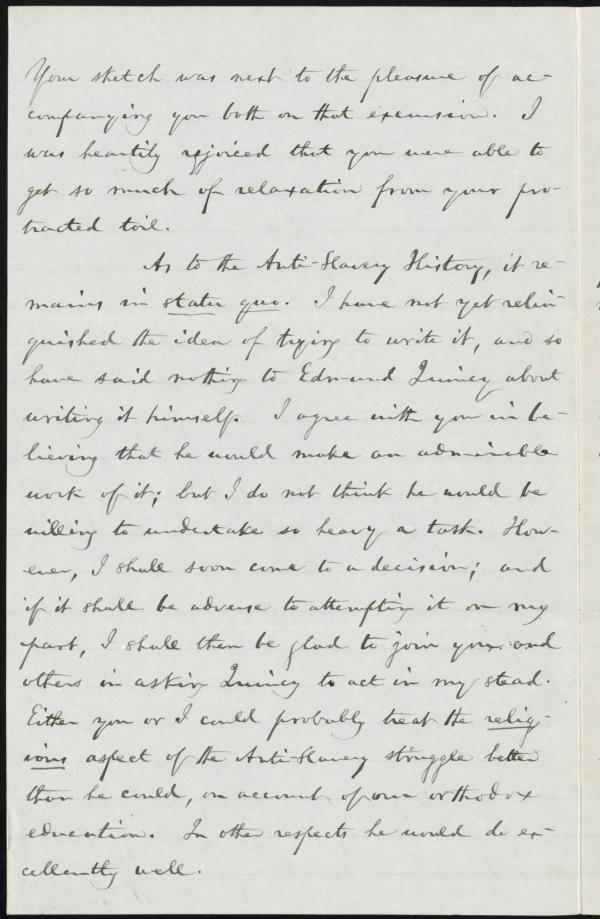 Your sketch was next to the pleasure of ac-
companying you both on that excursion. I
was heartily rejoiced that you were able to
get so much of relaxation from your pro-
tracted toil.
As to the Anti-Slavery History, it re-
mains in statu quo. I have not yet relin-
quished the idea of trying to write it, and so
have said nothing to Edmund Quincy about
writing it himself. I agree with you in be-
lieving that he would make an admirable
work of it; but I do not think he would be
willing to undertake so heavy a task. How-
ever, I shall soon come to a decision; and
if it shall be adverse to attempting it on my
part, I shall then be glad to join you and
others in asking Quincy to act in my stead.
Either you or I could probably treat the relig-
ious aspect of the Anti-Slavery struggle better
than he could, on account of our orthodox
education. In other respects he would do ex-
cellently well.